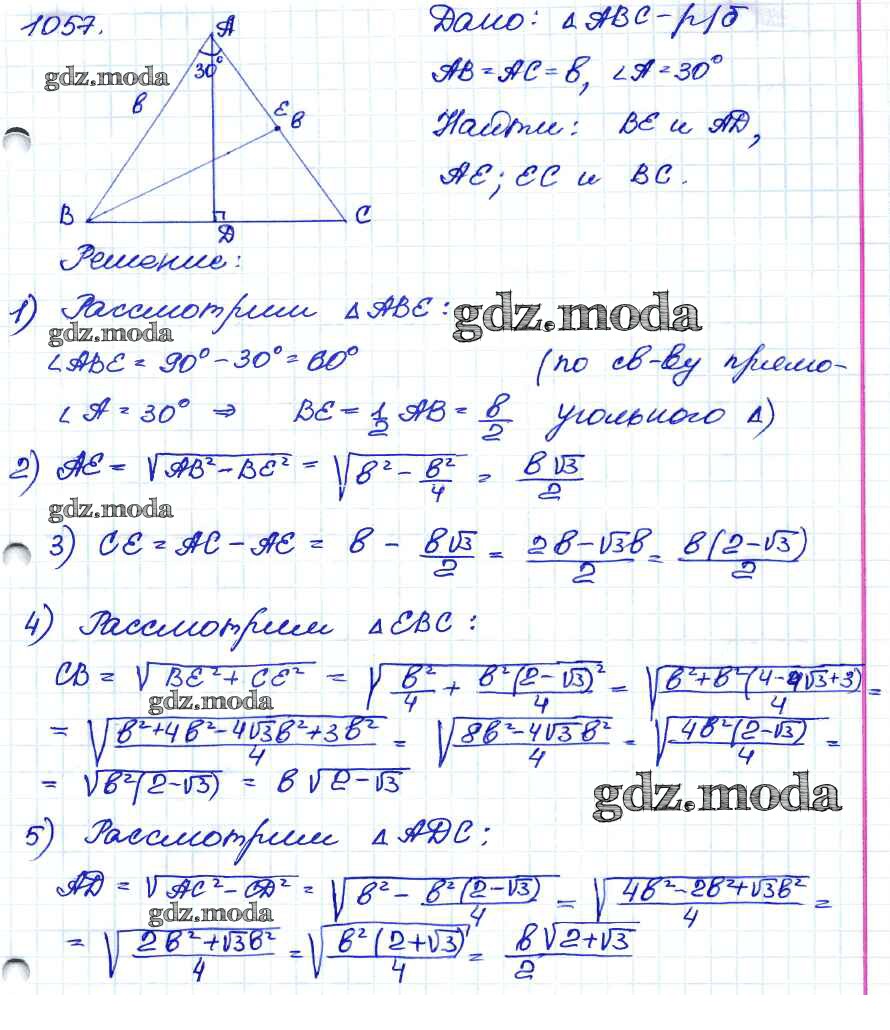 1057.
A
30°
в
E
в
B
D
C
Дано: △ABC - р/б
AB = AC = в, ∠A = 30°
Найти: BE и AD,
AE; EC и BC.
gdz.moda
Решение:
1) Рассмотрим △ABE:
gdz.moda
gdz.moda
∠ABE = 90° - 30° = 60° (по св-ву прямо-
∠A = 30° ⇒ BE = 1/2 AB = в/2 угольного △)
2) AE = √(AB² - BE²) = √(в² - в²/4) = в√3/2
gdz.moda
3) CE = AC - AE = в - в√3/2 = (2в - √3в)/2 = в(2 - √3)/2
4) Рассмотрим △EBC:
CB = √(BE² + CE²) = √(в²/4 + в²(2 - √3)²/4) = √((в² + в²(4 - 4√3 + 3))/4) =
gdz.moda
= √((в² + 4в² - 4√3в² + 3в²)/4) = √((8в² - 4√3в²)/4) = √(4в²(2 - √3)/4) =
= √(в²(2 - √3)) = в√(2 - √3)
gdz.moda
5) Рассмотрим △ADC;
AD = √(AC² - CD²) = √(в² - в²(2 - √3)/4) = √((4в² - 2в² + √3в²)/4) =
gdz.moda
= √((2в² + √3в²)/4) = √(в²(2 + √3)/4) = в√(2 + √3)/2